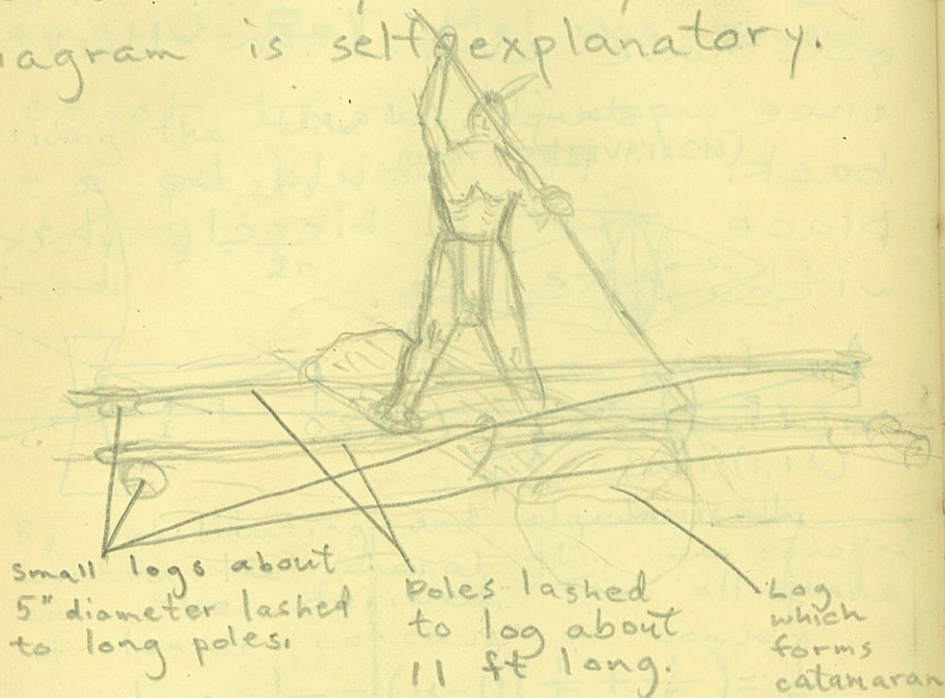 iagram is self explanatory.
small logs about
5" diameter lashed
to long poles.
Poles lashed
to log about
11 ft long.
Log
which
forms
catamaran